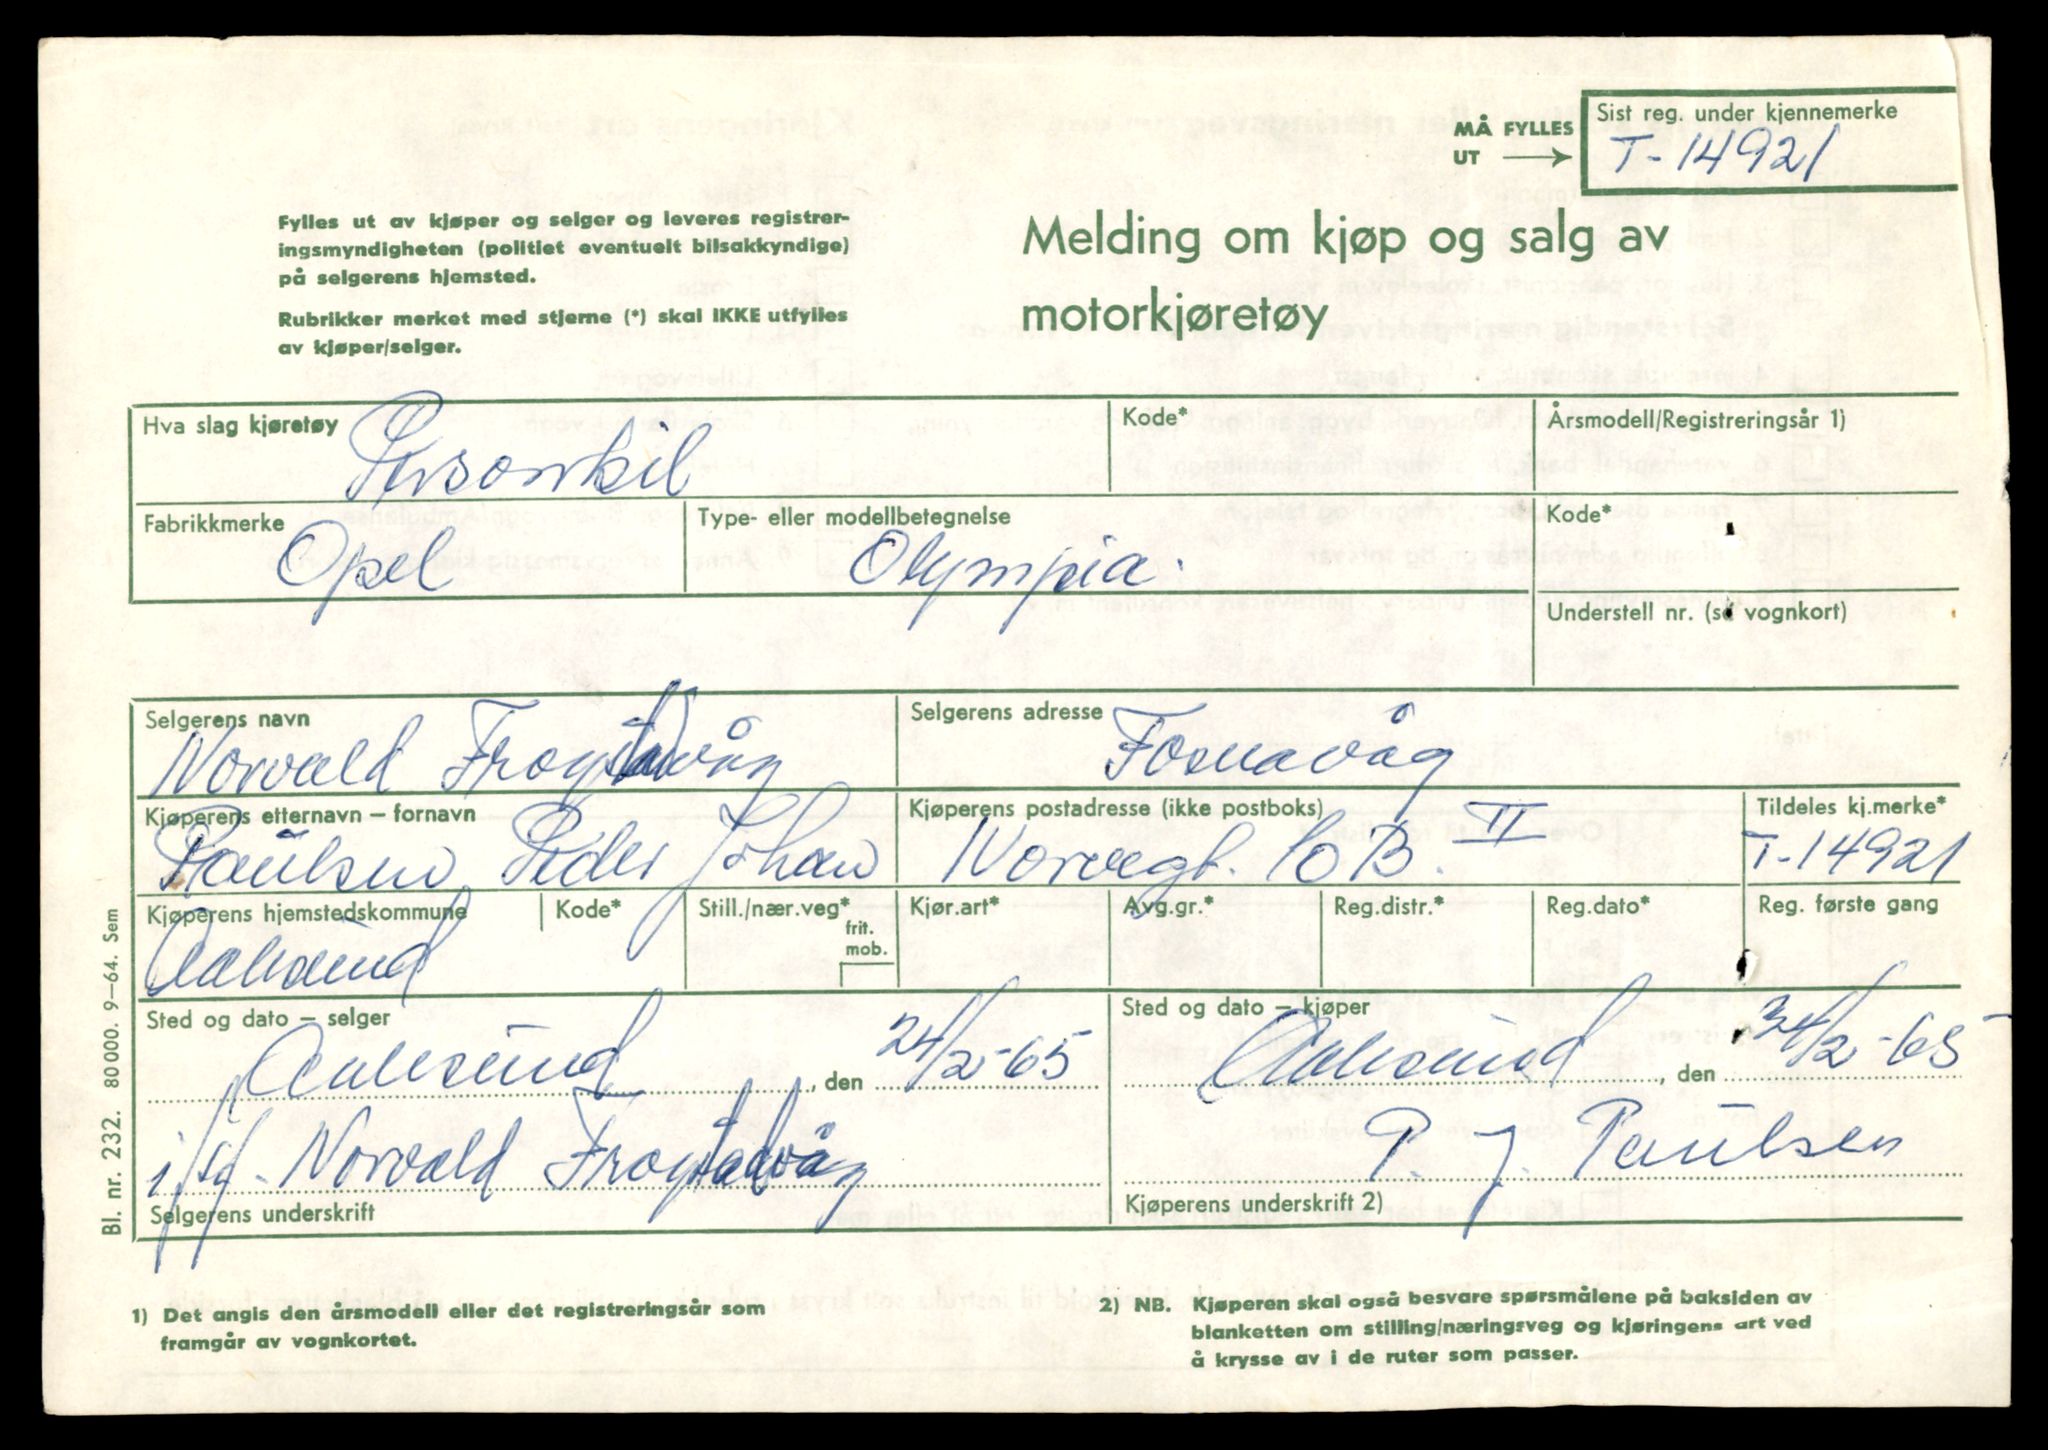 MÅ FYLLES UT
Sist reg. under kjennemerke
T-14921
Fylles ut av kjøper og selger og leveres registrer-
ingsmyndigheten (politiet eventuelt bilsakkyndige)
på selgerens hjemsted.
Rubrikker merket med stjerne (*) skal IKKE utfylles
av kjøper/selger.
Melding om kjøp og salg av
motorkjøretøy
Hva slag kjøretøy
Personbil
Kode*
Årsmodell/Registreringsår 1)
Fabrikkmerke
Opel
Type- eller modellbetegnelse
Olympia.
Kode*
Understell nr. (se vognkort)
Selgerens navn
Norvald
Selgerens adresse
Fosnavåg
Kjøperens etternavn – fornavn
Paulsen Peder Johan
Kjøperens postadresse (ikke postboks)
Norvegt. 10 B. II
Tildeles kj.merke*
T-14921
Kjøperens hjemstedskommune
Aalesund
Kode*
Still./nær.veg*
frit.
mob.
Kjør.art*
Avg.gr.*
Reg.distr.*
Reg.dato*
Reg. første gang
Sted og dato – selger
Aalesund, den 24/2-65
Sted og dato – kjøper
Aalesund, den 24/2-65
Norvald
Selgerens underskrift
P. J. Paulsen
Kjøperens underskrift 2)
Bl. nr. 232. 80 000. 9–64. Sem
1) Det angis den årsmodell eller det registreringsår som
framgår av vognkortet.
2) NB. Kjøperen skal også besvare spørsmålene på baksiden av
blanketten om stilling/næringsveg og kjøringens art ved
å krysse av i de ruter som passer.